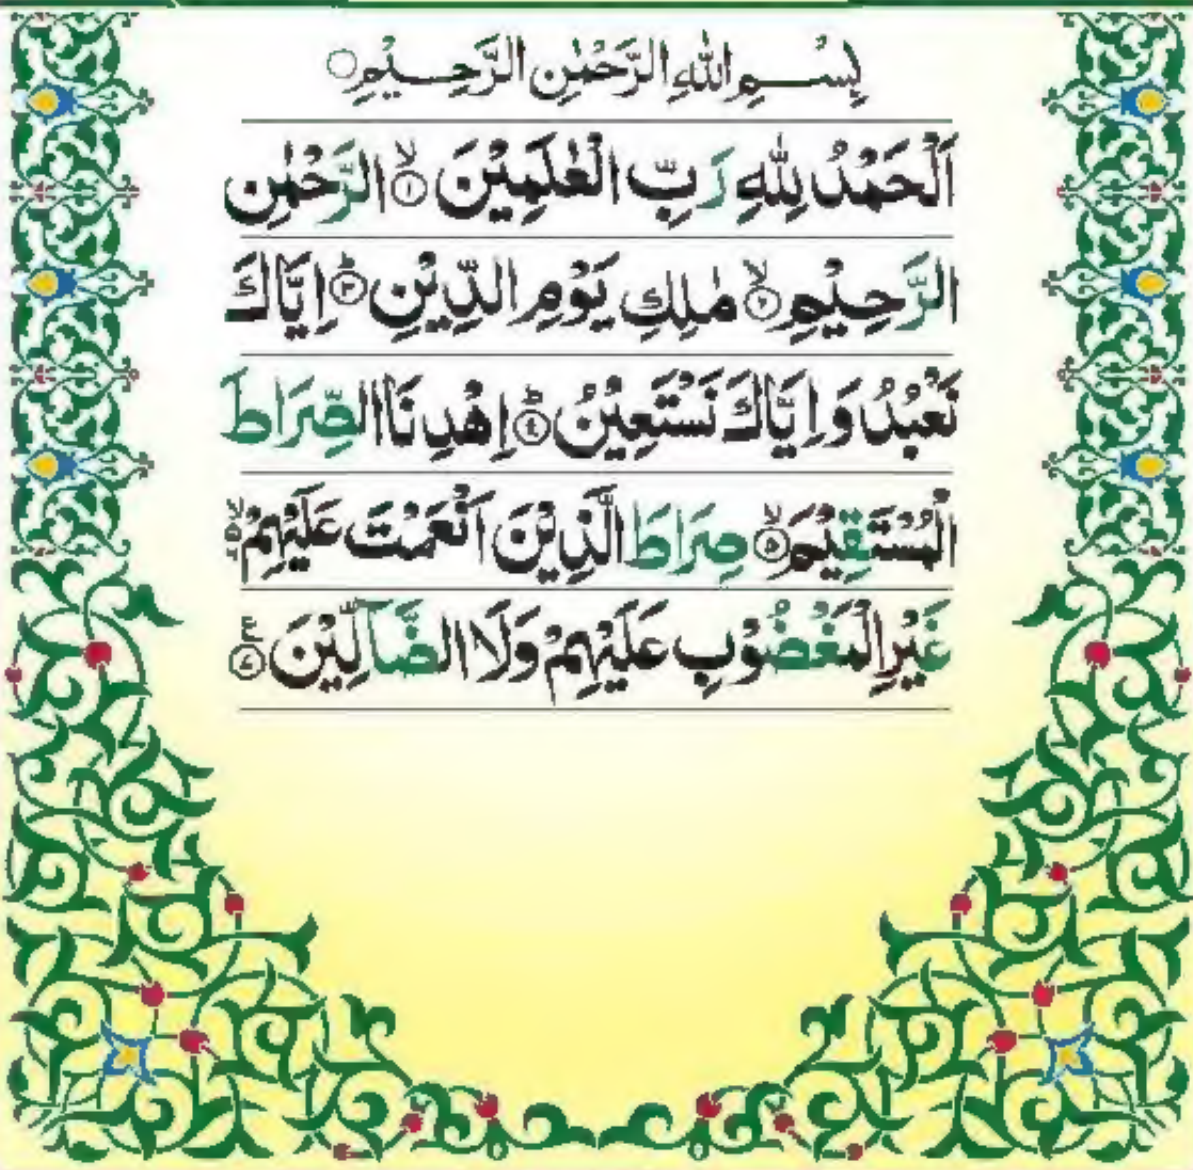 بِسْمِ اللهِ الرَّحْمٰنِ الرَّحِيْمِ ○
اَلْحَمْدُ لِلّٰهِ رَبِّ الْعٰلَمِيْنَ ۙ﴿۱﴾ الرَّحْمٰنِ
الرَّحِيْمِ ۙ﴿۲﴾ مٰلِكِ يَوْمِ الدِّيْنِ ؕ﴿۳﴾ اِيَّاكَ
نَعْبُدُ وَ اِيَّاكَ نَسْتَعِيْنُ ؕ﴿۴﴾ اِهْدِنَا الصِّرَاطَ
الْمُسْتَقِيْمَ ۙ﴿۵﴾ صِرَاطَ الَّذِيْنَ اَنْعَمْتَ عَلَيْهِمْ ۙ
غَيْرِ الْمَغْضُوْبِ عَلَيْهِمْ وَلَا الضَّآلِّيْنَ ﴿۷﴾